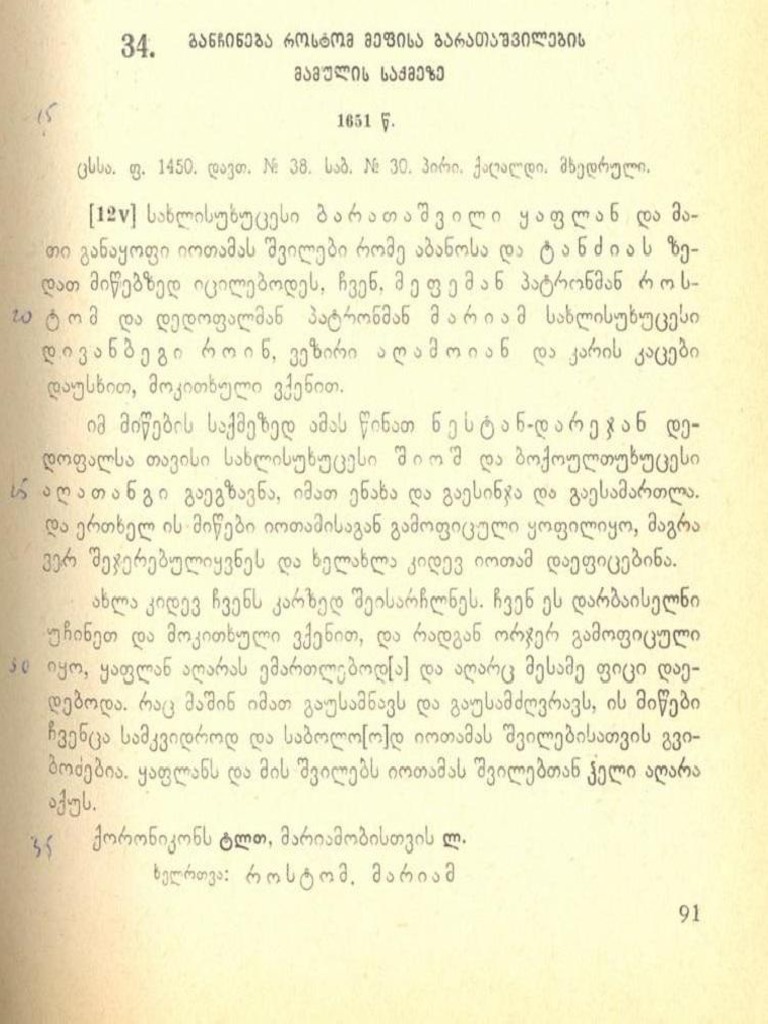 34. განჩინება როსტომ მეფისა ბარათაშვილების
მამულის საქმეზე
15
1651 წ.
ცსსა. ფ. 1450. დავთ. № 38. საბ. № 30. პირი. ქაღალდი. მხედრული.
[12v] სახლისუხუცესი ბარათაშვილი ყაფლან და მა-
თი განაყოფი იოთამას შვილები რომე აბანოსა და ტანძიას ზე-
დათ მიწებზედ იცილებოდეს, ჩვენ, მეფემან პატრონმან როს-
20 ტომ და დედოფალმან პატრონმან მარიამ სახლისუხუცესი
დივანბეგი როინ, ვეზირი აღამოიან და კარის კაცები
დაუსხით, მოკითხული ვქენით.
იმ მიწების საქმეზედ ამას წინათ ნესტან-დარეჯან დე-
დოფალსა თავისი სახლისუხუცესი შიოშ და ბოქოულთუხუცესი
25 აღათანგი გაეგზავნა, იმათ ენახა და გაესინჯა და გაესამართლა.
და ერთხელ ის მიწები იოთამისაგან გამოფიცული ყოფილიყო, მაგრა
ვერ შეჯერებულიყვნეს და ხელახლა კიდევ იოთამ დაეფიცებინა.
ახლა კიდევ ჩვენს კარზედ შეისარჩლნეს. ჩვენ ეს დარბაისელნი
უჩინეთ და მოკითხული ვქენით, და რადგან ორჯერ გამოფიცული
30 იყო, ყაფლან აღარას ემართლებოდ[ა] და აღარც მესამე ფიცი დაე-
დებოდა. რაც მაშინ იმათ გაუსამნავს და გაუსამძღვრავს, ის მიწები
ჩვენცა სამკვიდროდ და საბოლო[ო]დ იოთამას შვილებისათვის გვი-
ბოძებია. ყაფლანს და მის შვილებს იოთამას შვილებთან ჴელი აღარა
აქუს.
35 ქორონიკონს ტლთ, მარიამობისთვის ლ.
ხელრთვა: როსტომ, მარიამ
91